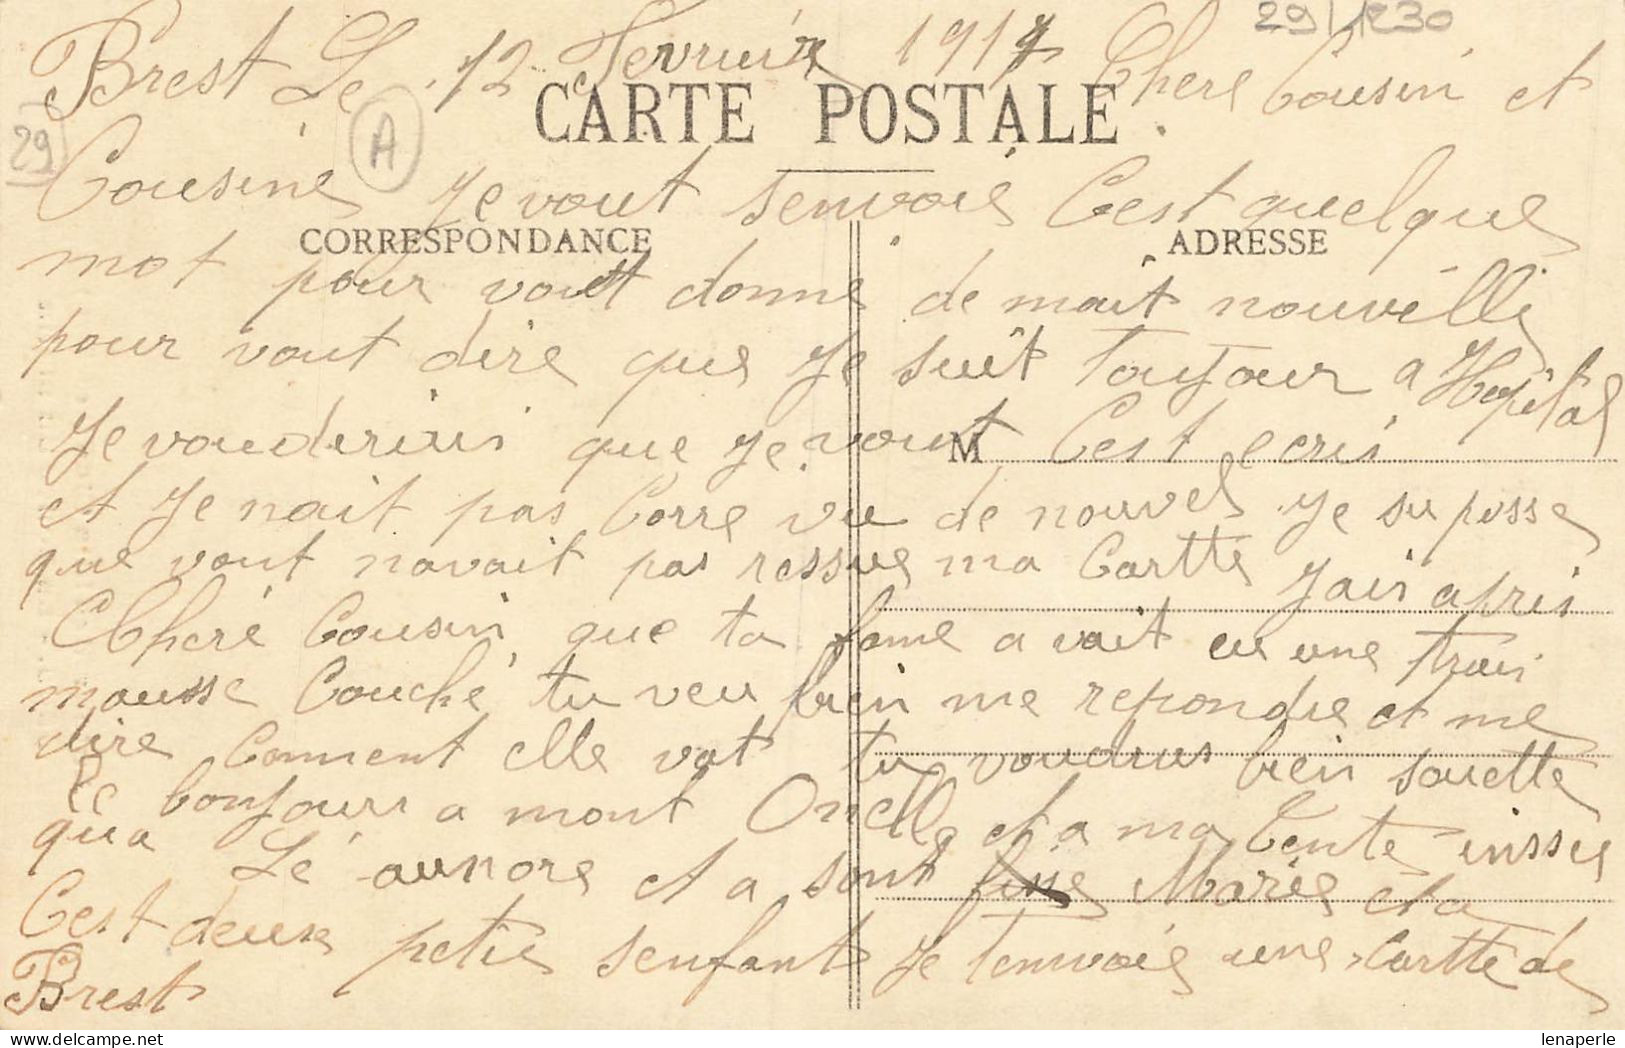 29/1230
Brest Le 12 Fevrier 1917 Chere Cousin et
CARTE POSTALE
29
A
Cousine Je vout senvoie Cest quelque
CORRESPONDANCE
ADRESSE
mot pour vout donne de mait nouvelle
pour vout dire que Je suit Toujour a Hopital
Je vouderiais que Je vout Cest ecris
M
et Je nait pas Corre vu de nouvel Je suposse
que vout navait pas ressue ma Cartte Jais apris
Chere Cousin que ta fame a vait eu une
mousse Couche tu veu bien me repondre et me
dire Comment elle vat tu bien souette
Le bonjour a mont Oncle et a ma Tente inssie
qua Lé aunore et a sont Marie et a
Cest deux petis senfant Je Tenvoie une Cartte de
Brest
lenaperle